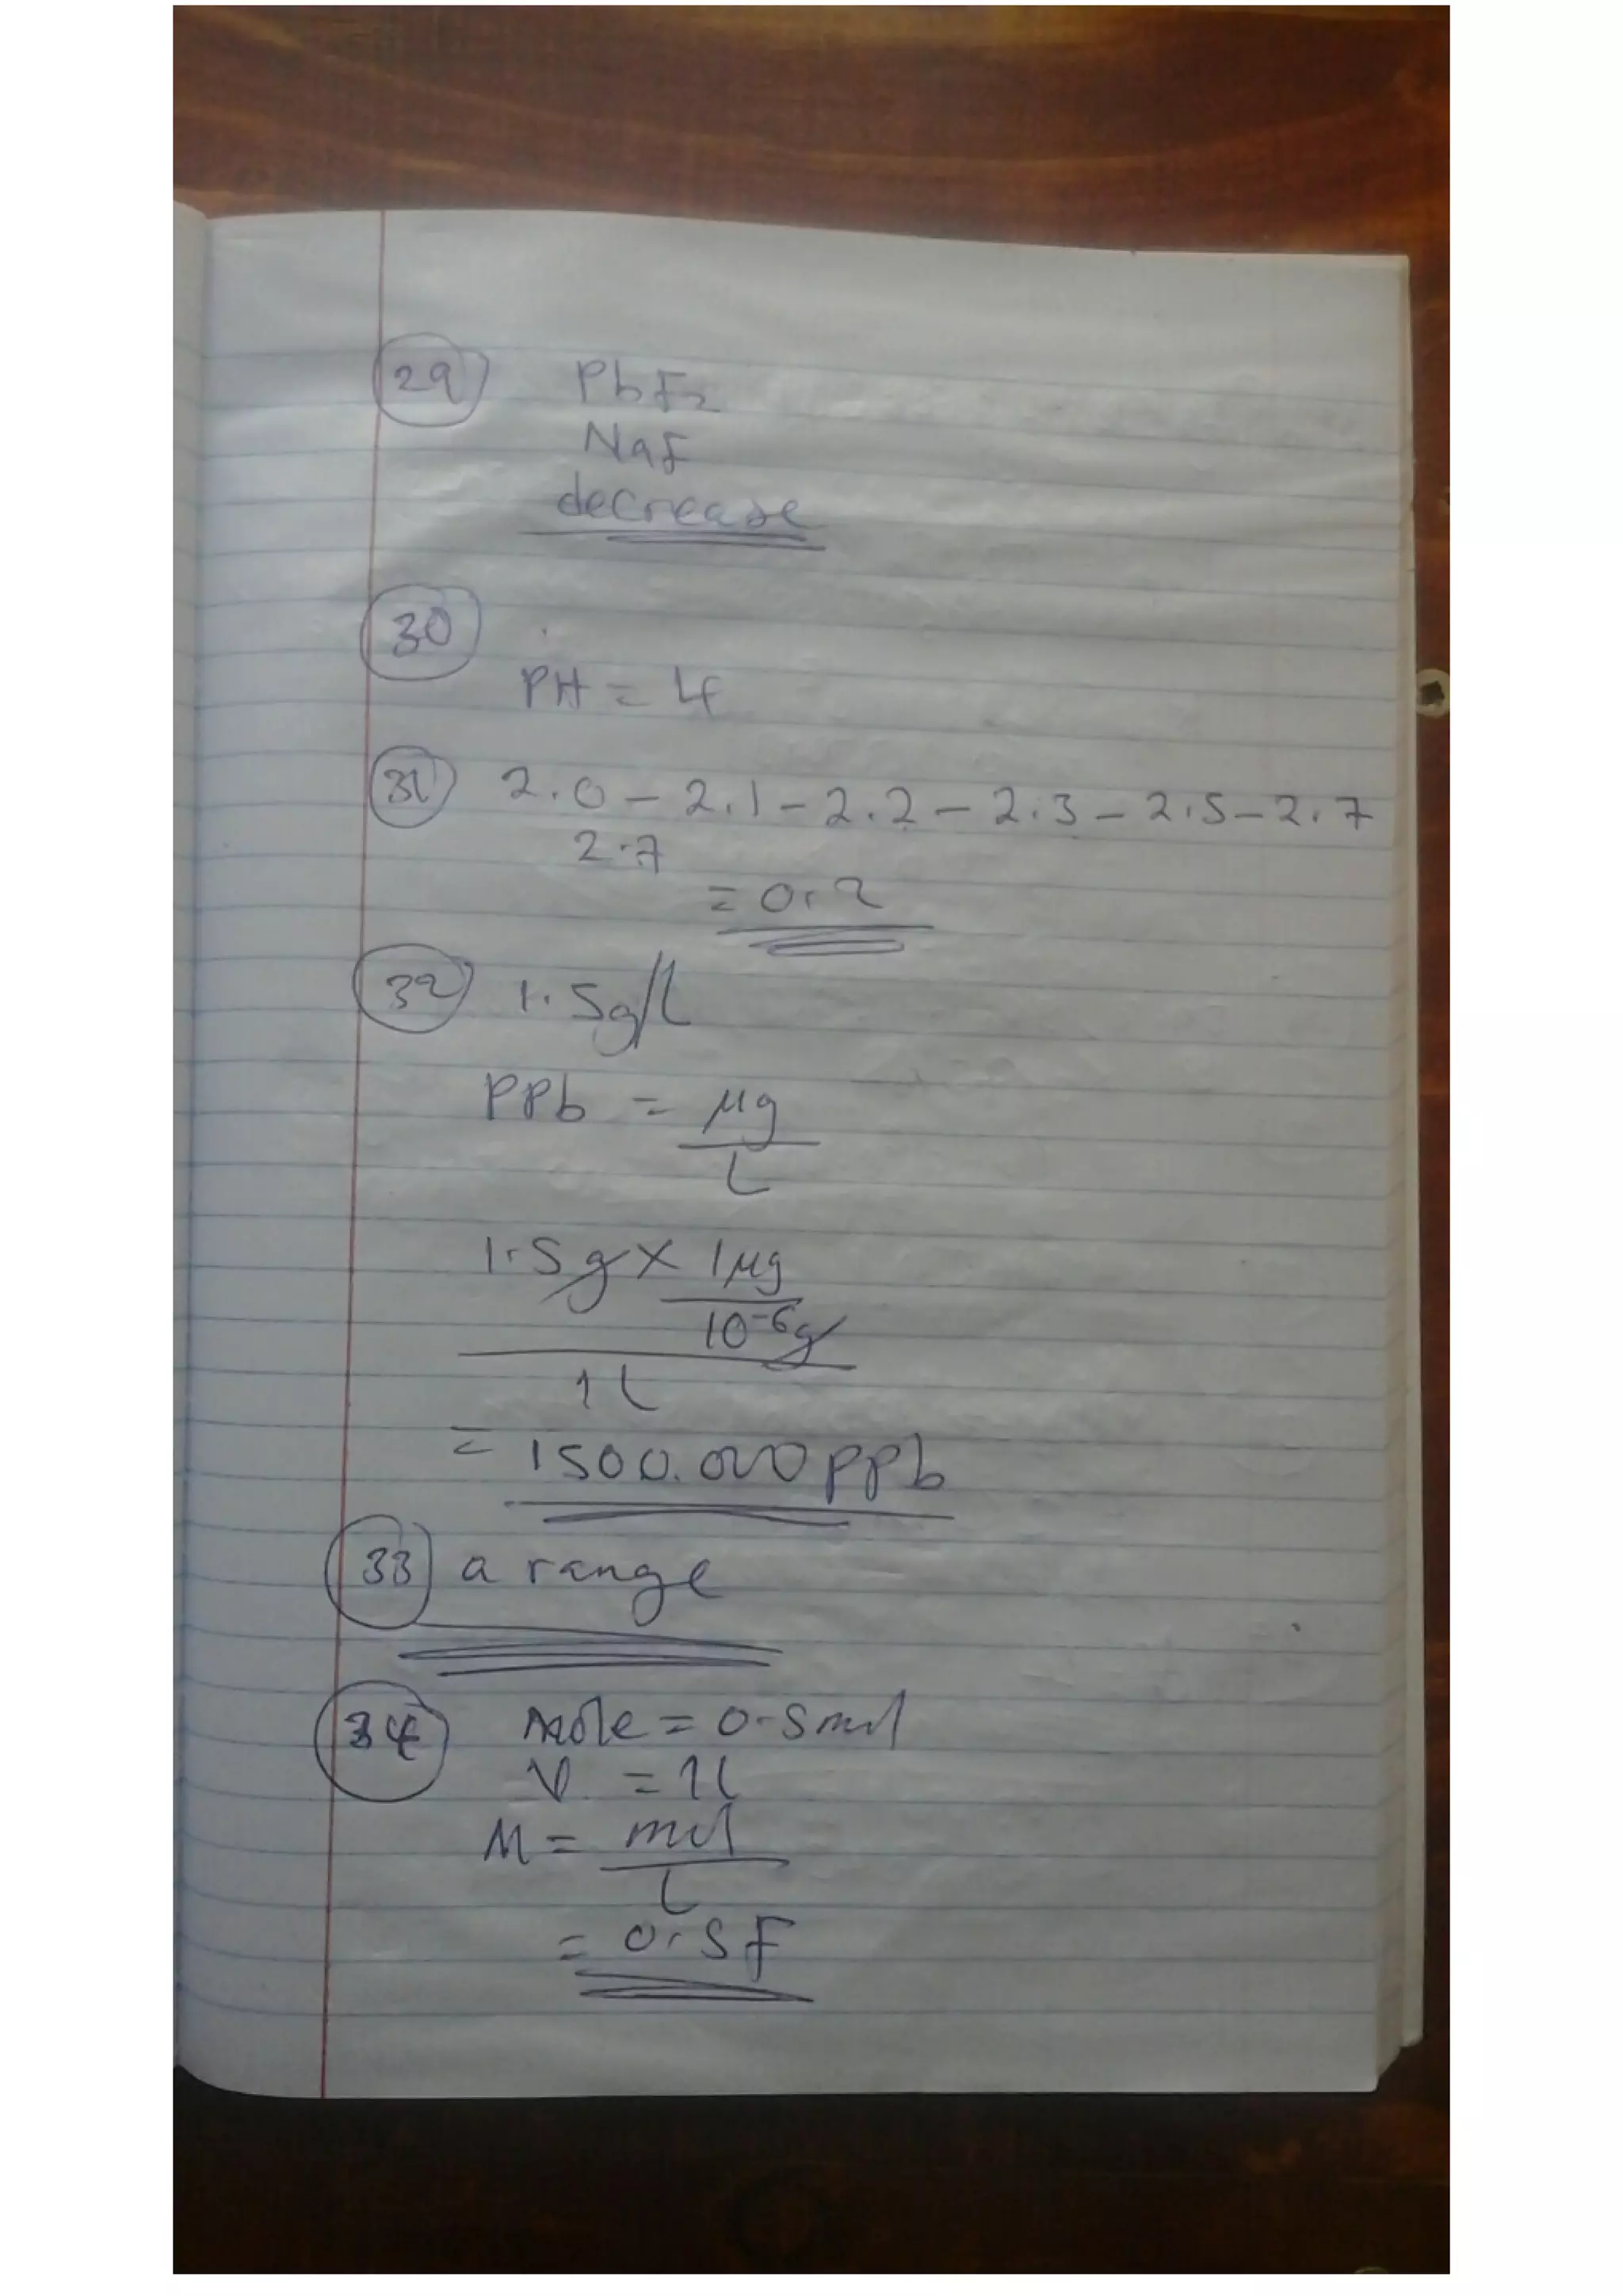 29 PbF₂
NaF
decrease
30
PH = 4
31 2.0 - 2.1 - 2.2 - 2.3 - 2.5 - 2.7
2.7
= 0.2
32 1.5g/L
PPb = μg
L
1.5g x 1μg
10⁻⁶g
1L
= 1500.000ppb
33 a range
34 mole = 0.5mol
V = 1L
M = mol
L
= 0.5F